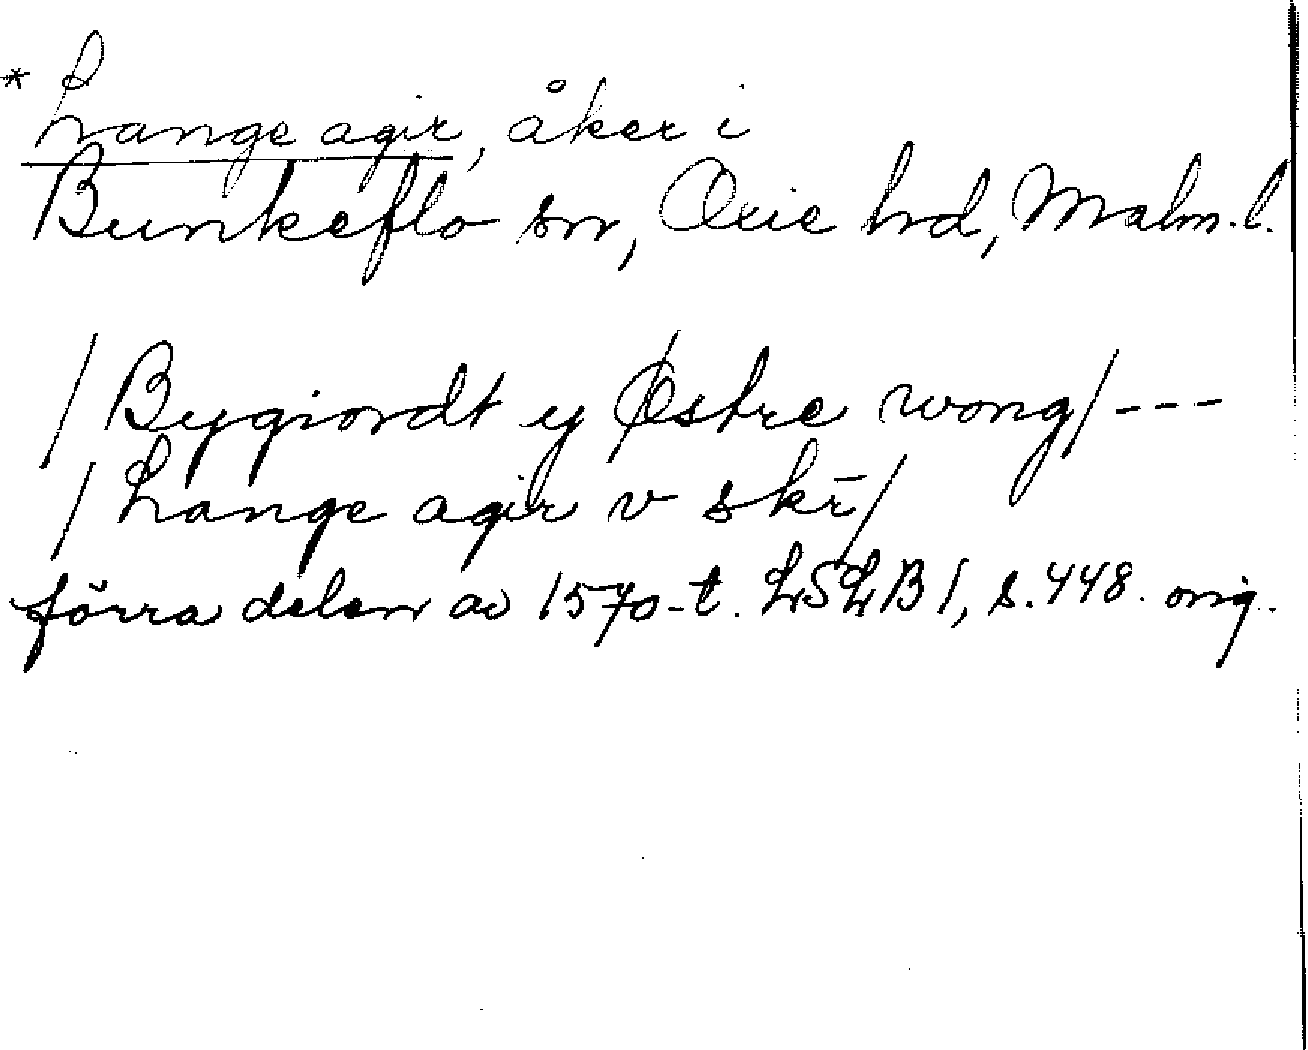 * Lange agir, åker i
Bunkeflo sn, Oxie hd, Malm. l.
/Bygiordt ij Østre wong/---
/Lange agir v skī/
förra delen av 1570-t. LSLB I, s. 448. orig.